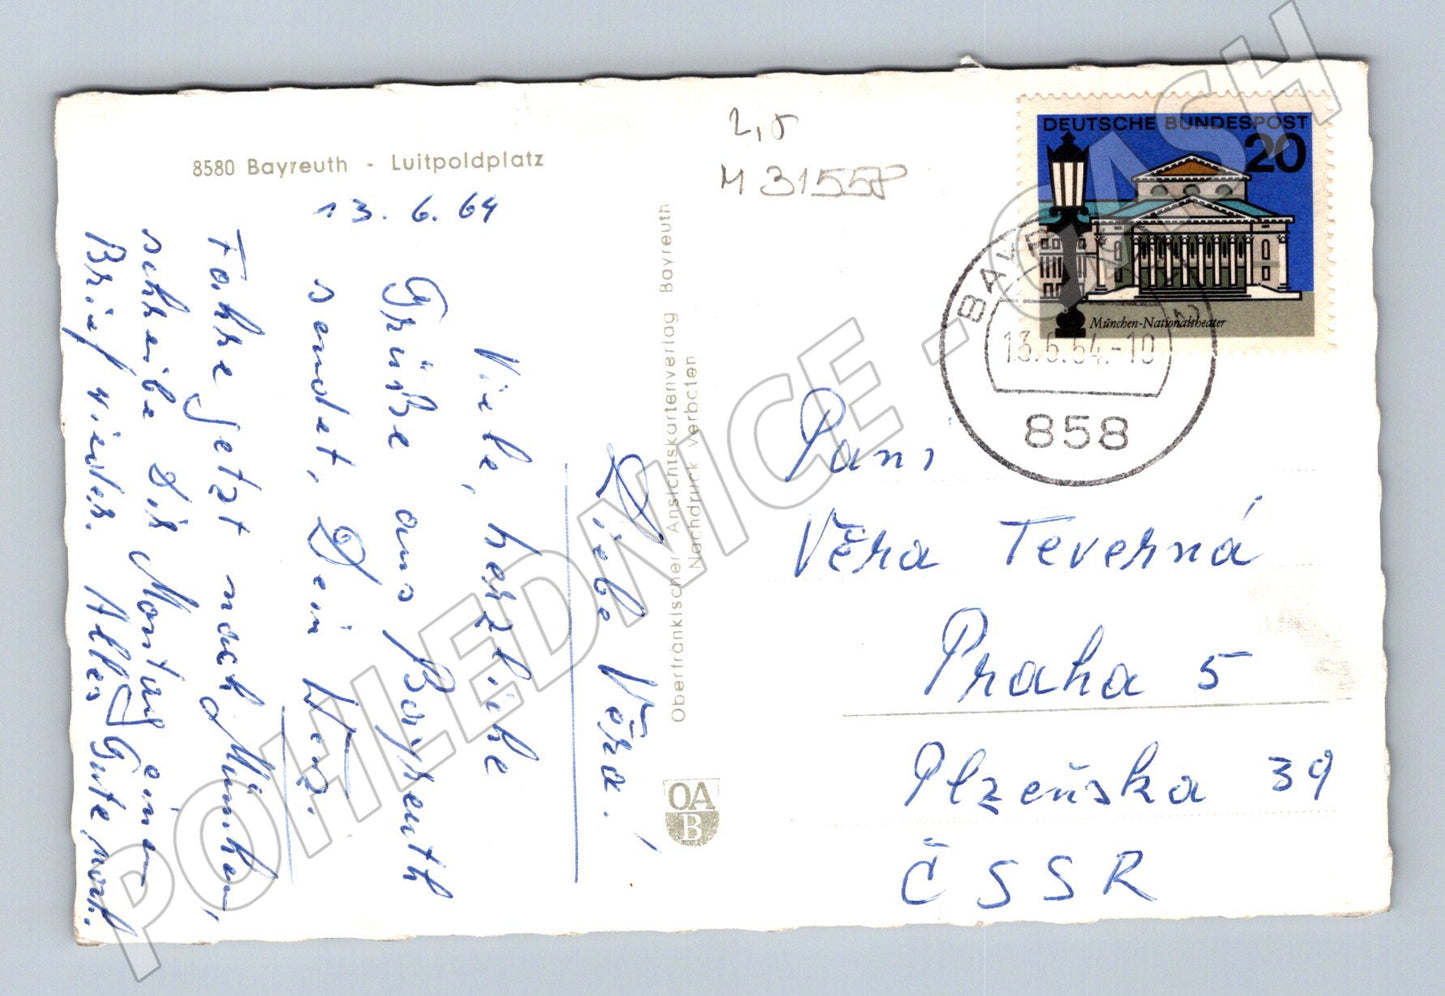 8580 Bayreuth - Luitpoldplatz
13. 6. 64
Liebe Věra!
Viele, herzliche
Grüße aus Bayreuth
sendet, Dein
Fahre jetzt nach München,
schreibe Dir Montag einen
Brief wieder. Alles Gute noch.
Oberfränkischer Ansichtskartenverlag Bayreuth
Nachdruck verboten
OA
B
2,5
M 3155P
DEUTSCHE BUNDESPOST
20
München-Nationaltheater
13.6.64.-10
858
Paní
Věra Teverná
Praha 5
Plzeňská 39
ČSSR
POHLEDNICE - CASH